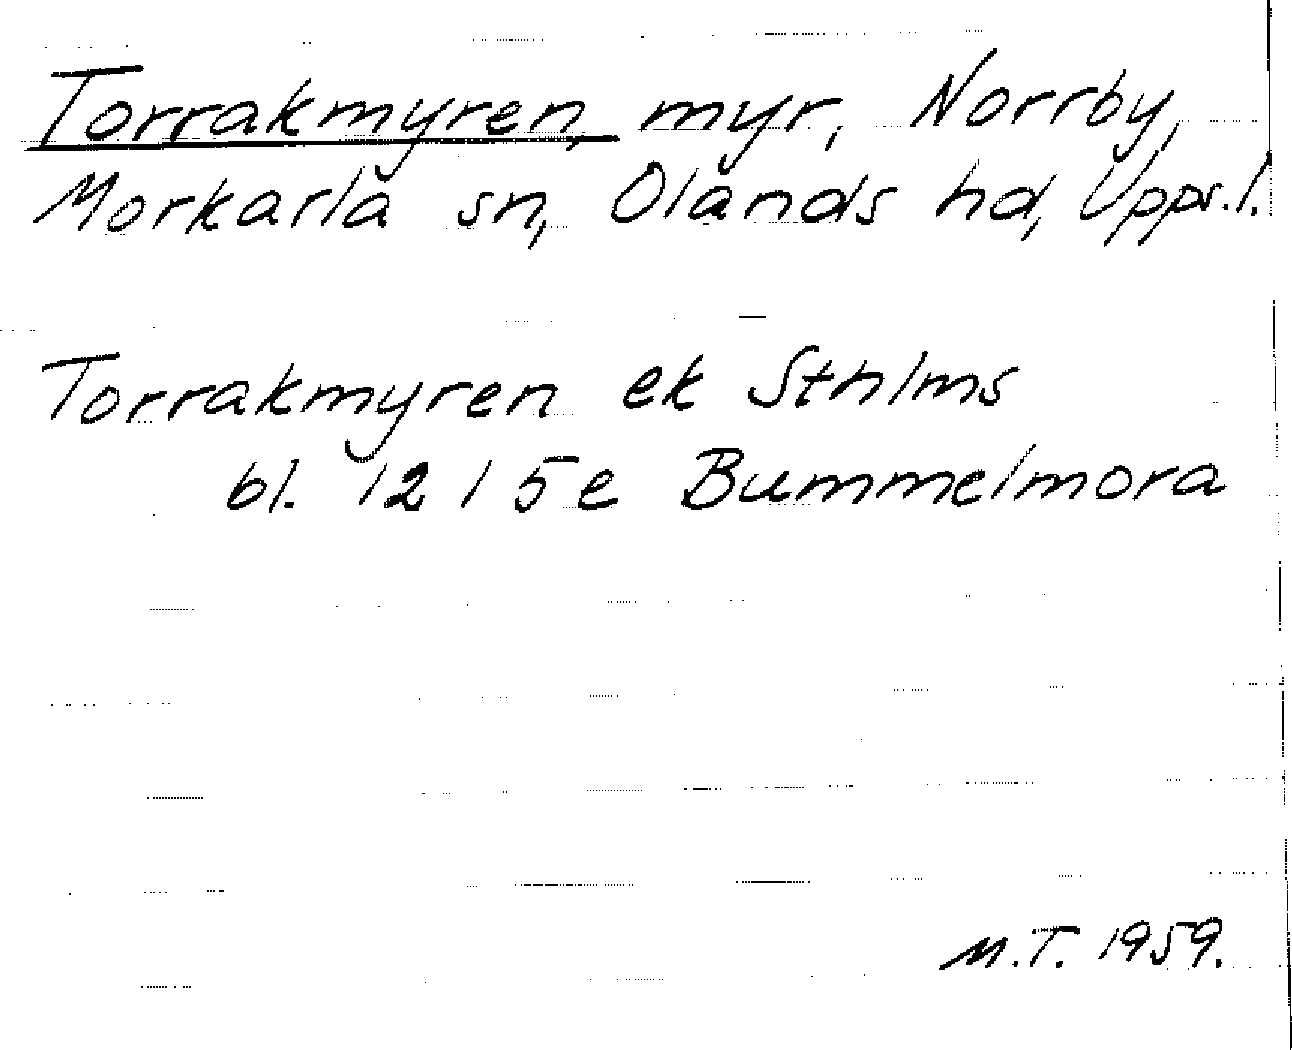 Torrakmyren, myr, Norrby,
Morkarla sn, Olands hd, Upps.l.
Torrakmyren ek Sthlms
bl. 12 I 5e Bummelmora
M.T. 1959.